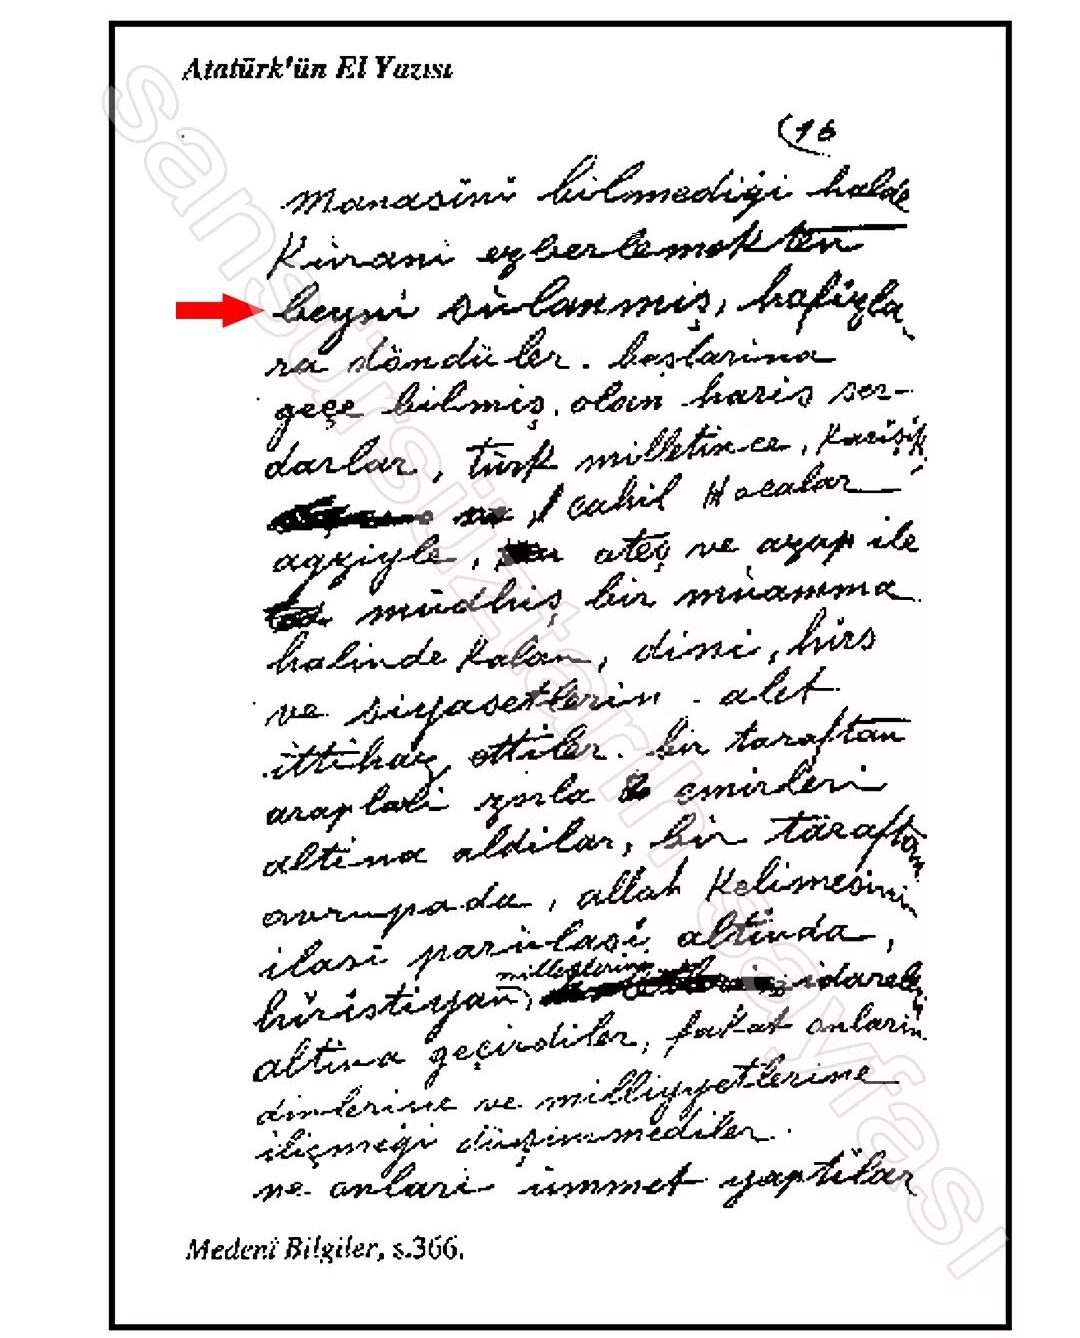 Atatürk'ün El Yazısı
(16
manasïnï bilmediği halde
Kûranï ezberlemekten
beyni sûlanmiş, hafïzla
ra döndüler. başlarina
geçe bilmiş, olan haris ser-
darlar, türk milletince, Karïşïk
cahil Hocalar
agziyle, ateş ve azap ile
müdhiş bir müamma
halinde Kalan, dini, hïrs
ve siyasetlerin alet
ittihaz ettiler. bir taraftan
araplari zorla emirleri
altïna aldilar, bir taraftan
avrupada, allah Kelimesinin
ilasï parûlasï altïnda,
milletlerini
hïristiyan idareleri
altïna geçirdiler, fakat onlarin
dinlerine ve milliyyetlerine
ilişmeği düşünmediler.
ne onlari ümmet yaptïlar
Medenî Bilgiler, s.366.
sansürsüz tarih sayfası